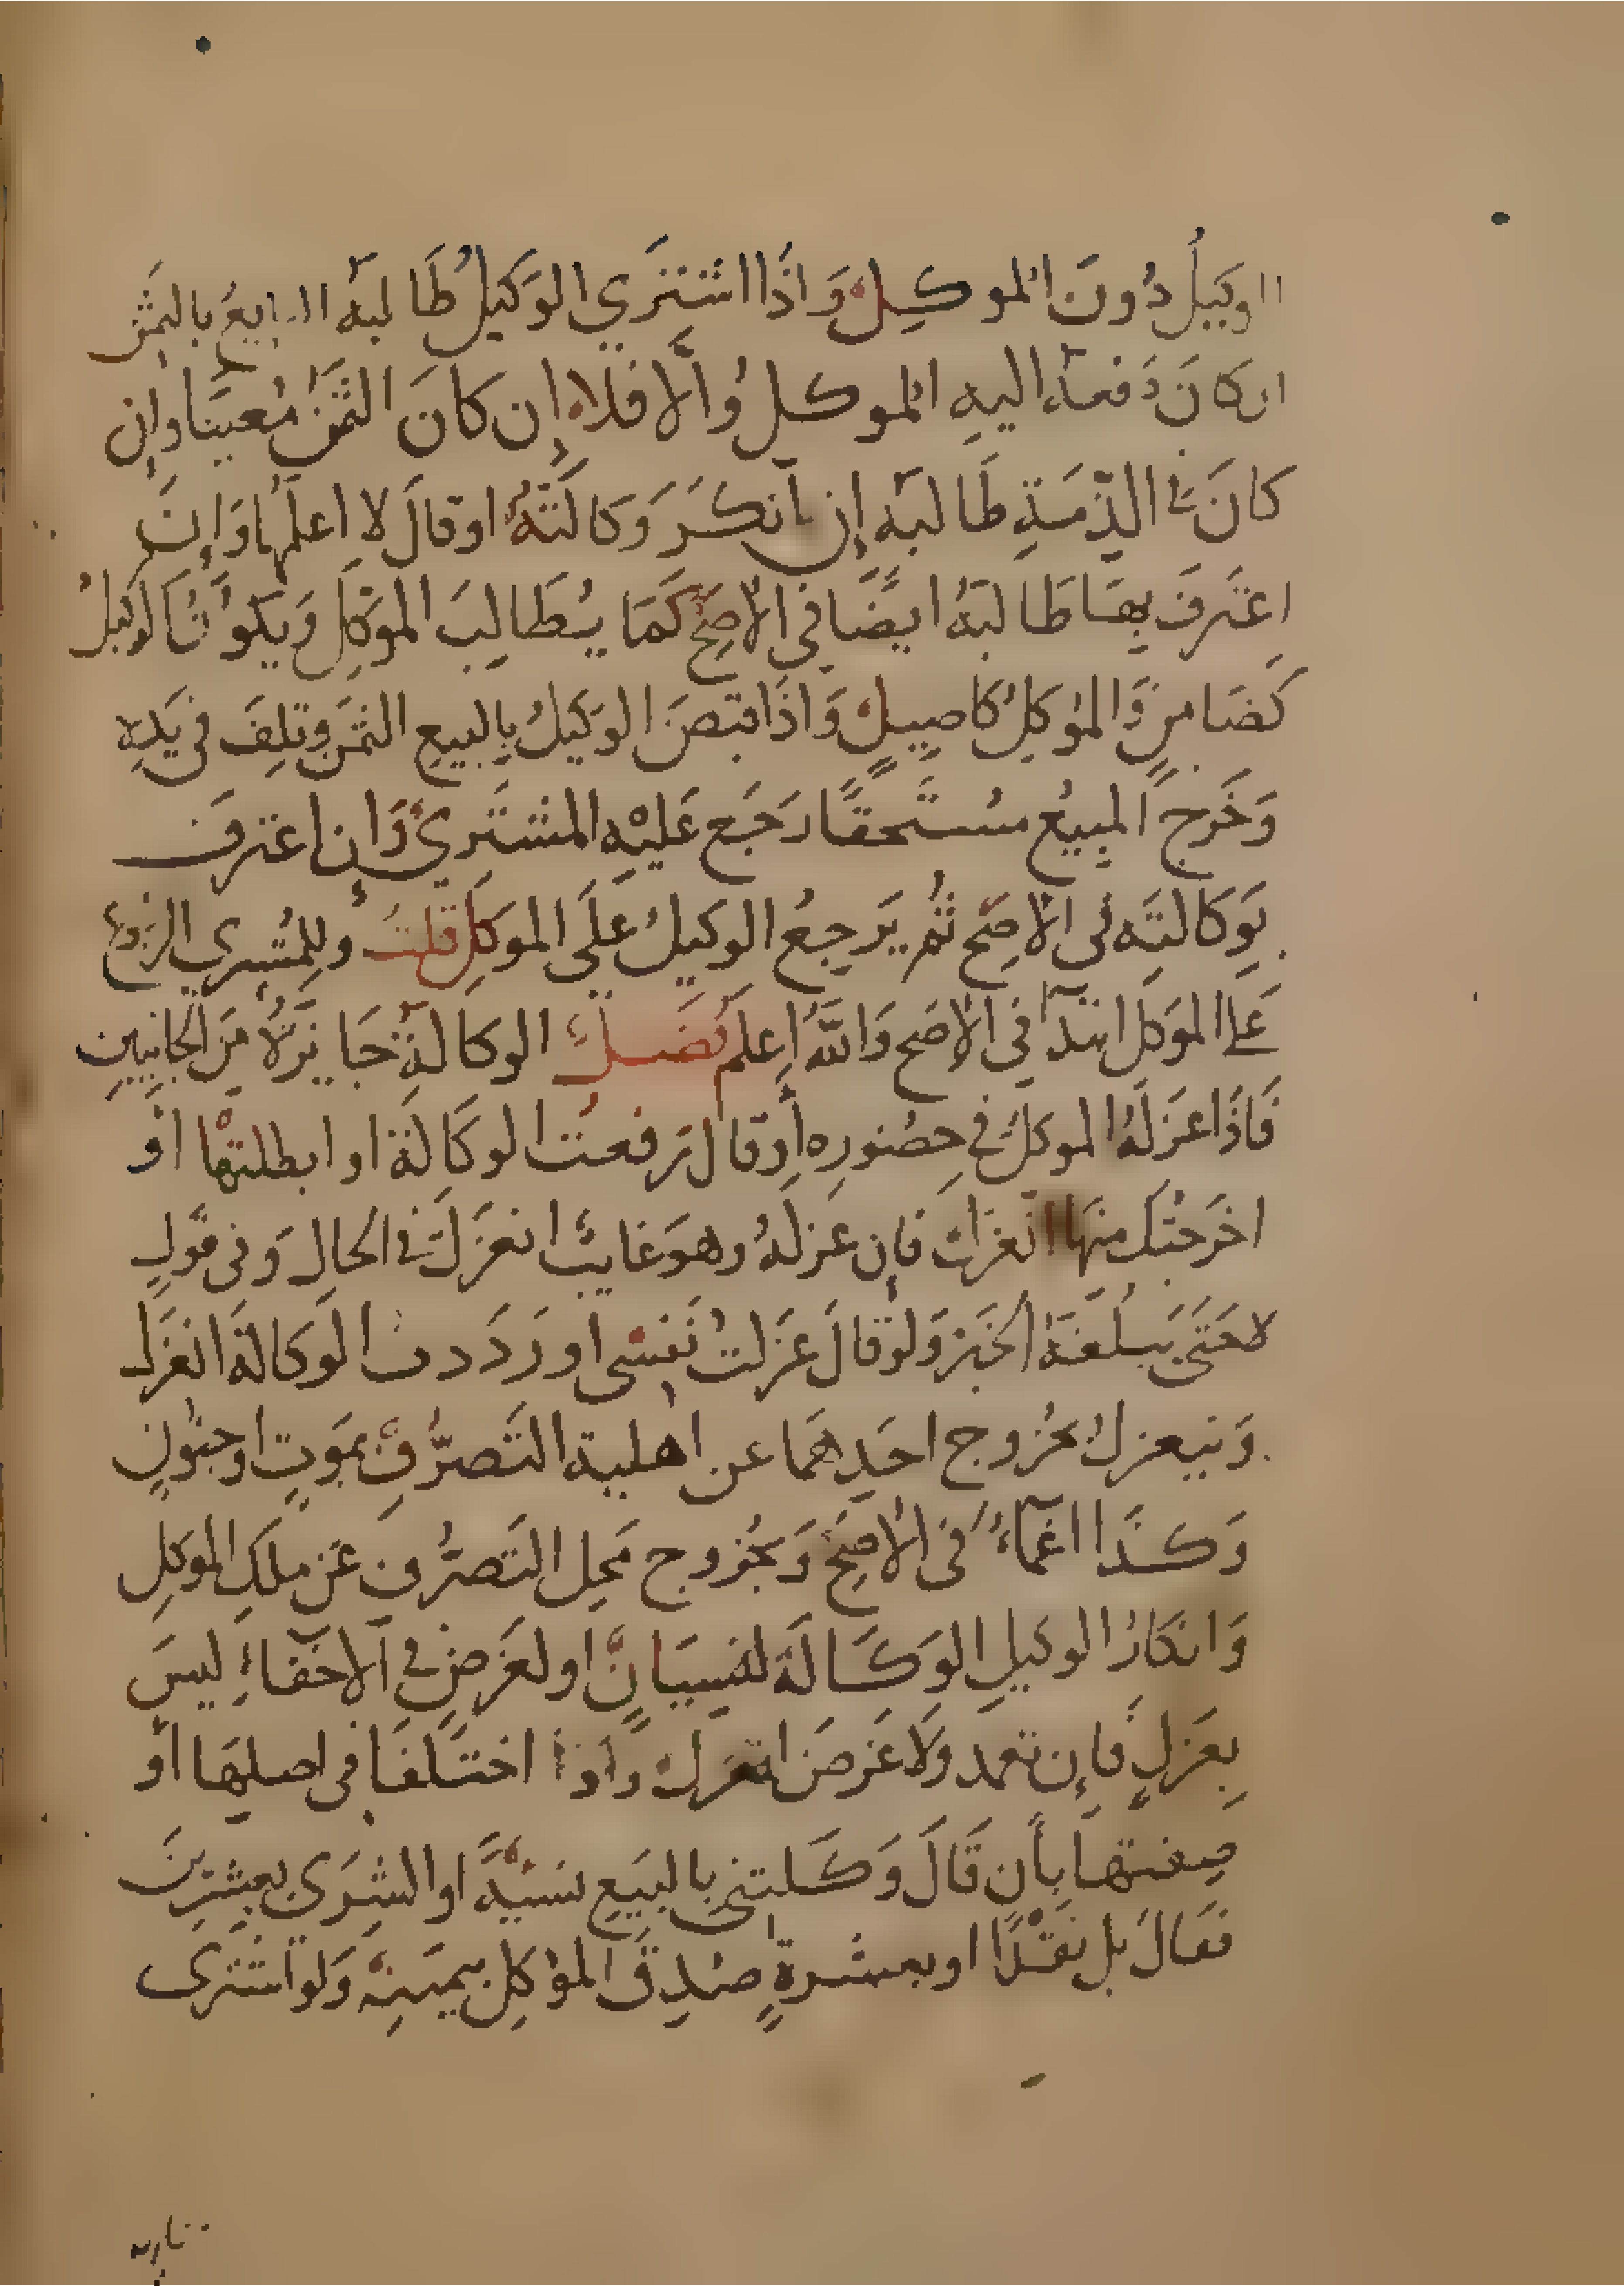 الوكيل دُونَ الموكِل وَاذَا اشترَي الوَكيلُ طَالبهُ البايعُ بالثمَن
ان كانَ دَفعهُ اليهِ الموكل وَالا فلا إن كانَ الثمَنُ مُعينًا وإن
كانَ في الذّمَةِ طَالبهُ إن أنكَرَ وَكالتَهُ اوقالَ لا اعلمُها وَإن
اعتَرفَ بِهَا طَالبَهُ ايضًا في الأصَحِ كَمَا يُطَالِبَ الموَكِل وَيكوُنُ الوكيلُ
كضَامِنٍ وَالموَكِلُ كاصِيلٍ وَاذَا قبَضَ الوَكيلُ بِالبيعِ الثمَن وتلِفَ في يَدِهِ
وَخَرجَ المبِيعُ مُستَحقًا رَجَع عَليْهِ المشترِي وَان اعترفَ
بِوَكَالتِهِ في الأصِح ثُم يَرجِعُ الوكيلُ عَلَى الموَكِلِ قلتُ وللمُشتري الرجوع
عَلى الموَكل ابتدآ في الأصَح وَاللهُ اعلم فَصَل الوَكالةُ جَايزَةٌ مِنَ الجَانِبينِ
فَاذَا عَزلَهُ الموكلُ في حضُورِه أوقال رَفعتُ الوكَالةَ او ابطلتهَا أو
اخرَجتُك منهَا انعَزلَ فإن عَزلهُ وهوَ غايبٌ انعَزَلَ في الحالِ وَفى قَولٍ
لاحَتَى يَبلُغَهُ الخبَر وَلو قالَ عَزلتُ نَفسي او رَدَدتُ الوَكالةَ انعَزَل
وَينعزلُ بخُروجِ احَدِهمَا عن اهْلية التَصرّفِ بموَتٍ اوجنُونٍ
وَكَذَا اغمآءٌ فى الأصَحِ وَبخُروج مَحِل التَصرُّفِ عَن ملكِ الموكِلِ
وَانكارُ الوكيلِ الوَكَالةَ لنسيَانٍ اولغَرضٍ في الاخفآءِ ليسَ
بِعَزلٍ فإن تعمد وَلا غَرضَ انعَزلَ وَاذا اختلَفَا فى اصلهَا أو
صِفتهَا بأن قَالَ وَكَلتني بالبيَعِ نسَيةً او الشِرَى بعشرِينَ
فقالَ بل نَقْدًا او بعشرةٍ صُدِقَ الموَكِل بيمينِهِ وَلو اشترى